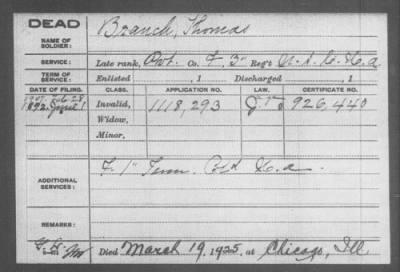 DEAD
NAME OF SOLDIER: Branch, Thomas
SERVICE: Late rank, Pvt. Co. F, 3" Reg't U.S.C.H.A.
TERM OF SERVICE: Enlisted , 1 Discharged , 1
DATE OF FILING. CLASS. APPLICATION NO. LAW. CERTIFICATE NO.
Invalid, 1118,293 926,440
Widow,
Minor,
ADDITIONAL SERVICES: F 1" Tenn. Col'd H.A.
REMARKS:
Died March 19, 1925, at Chicago, Ill.